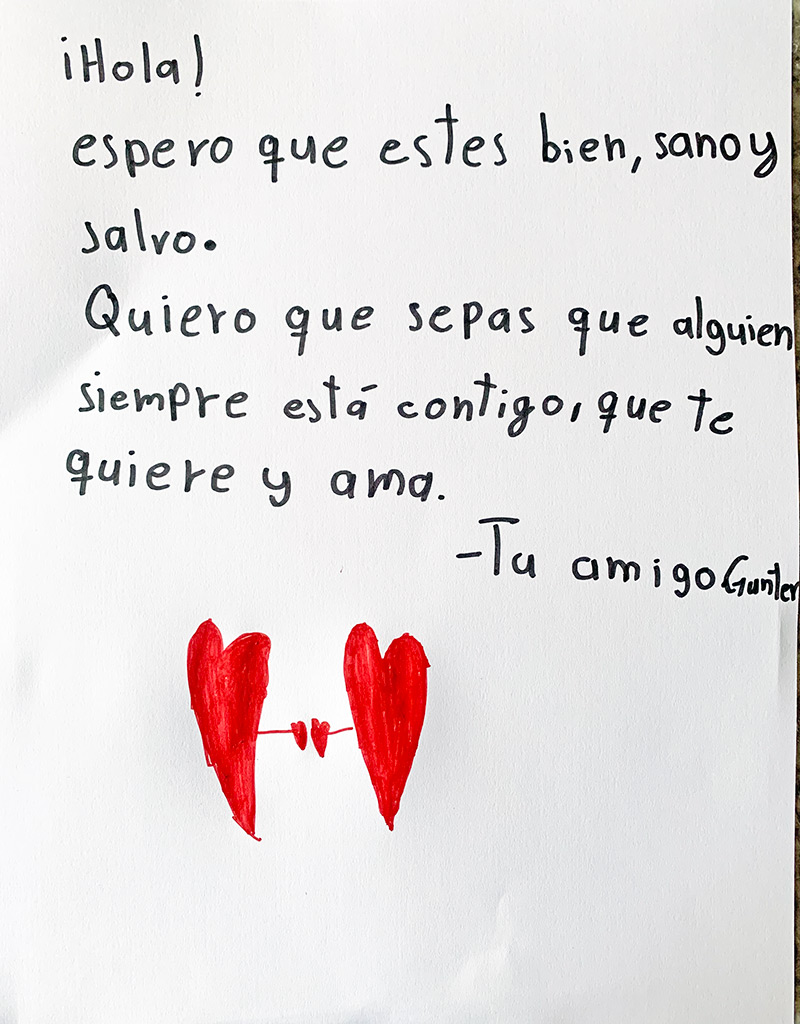 ¡Hola!
espero que estes bien, sano y
salvo.
Quiero que sepas que alguien
siempre está contigo, que te
quiere y ama.
-Tu amigo Gunter